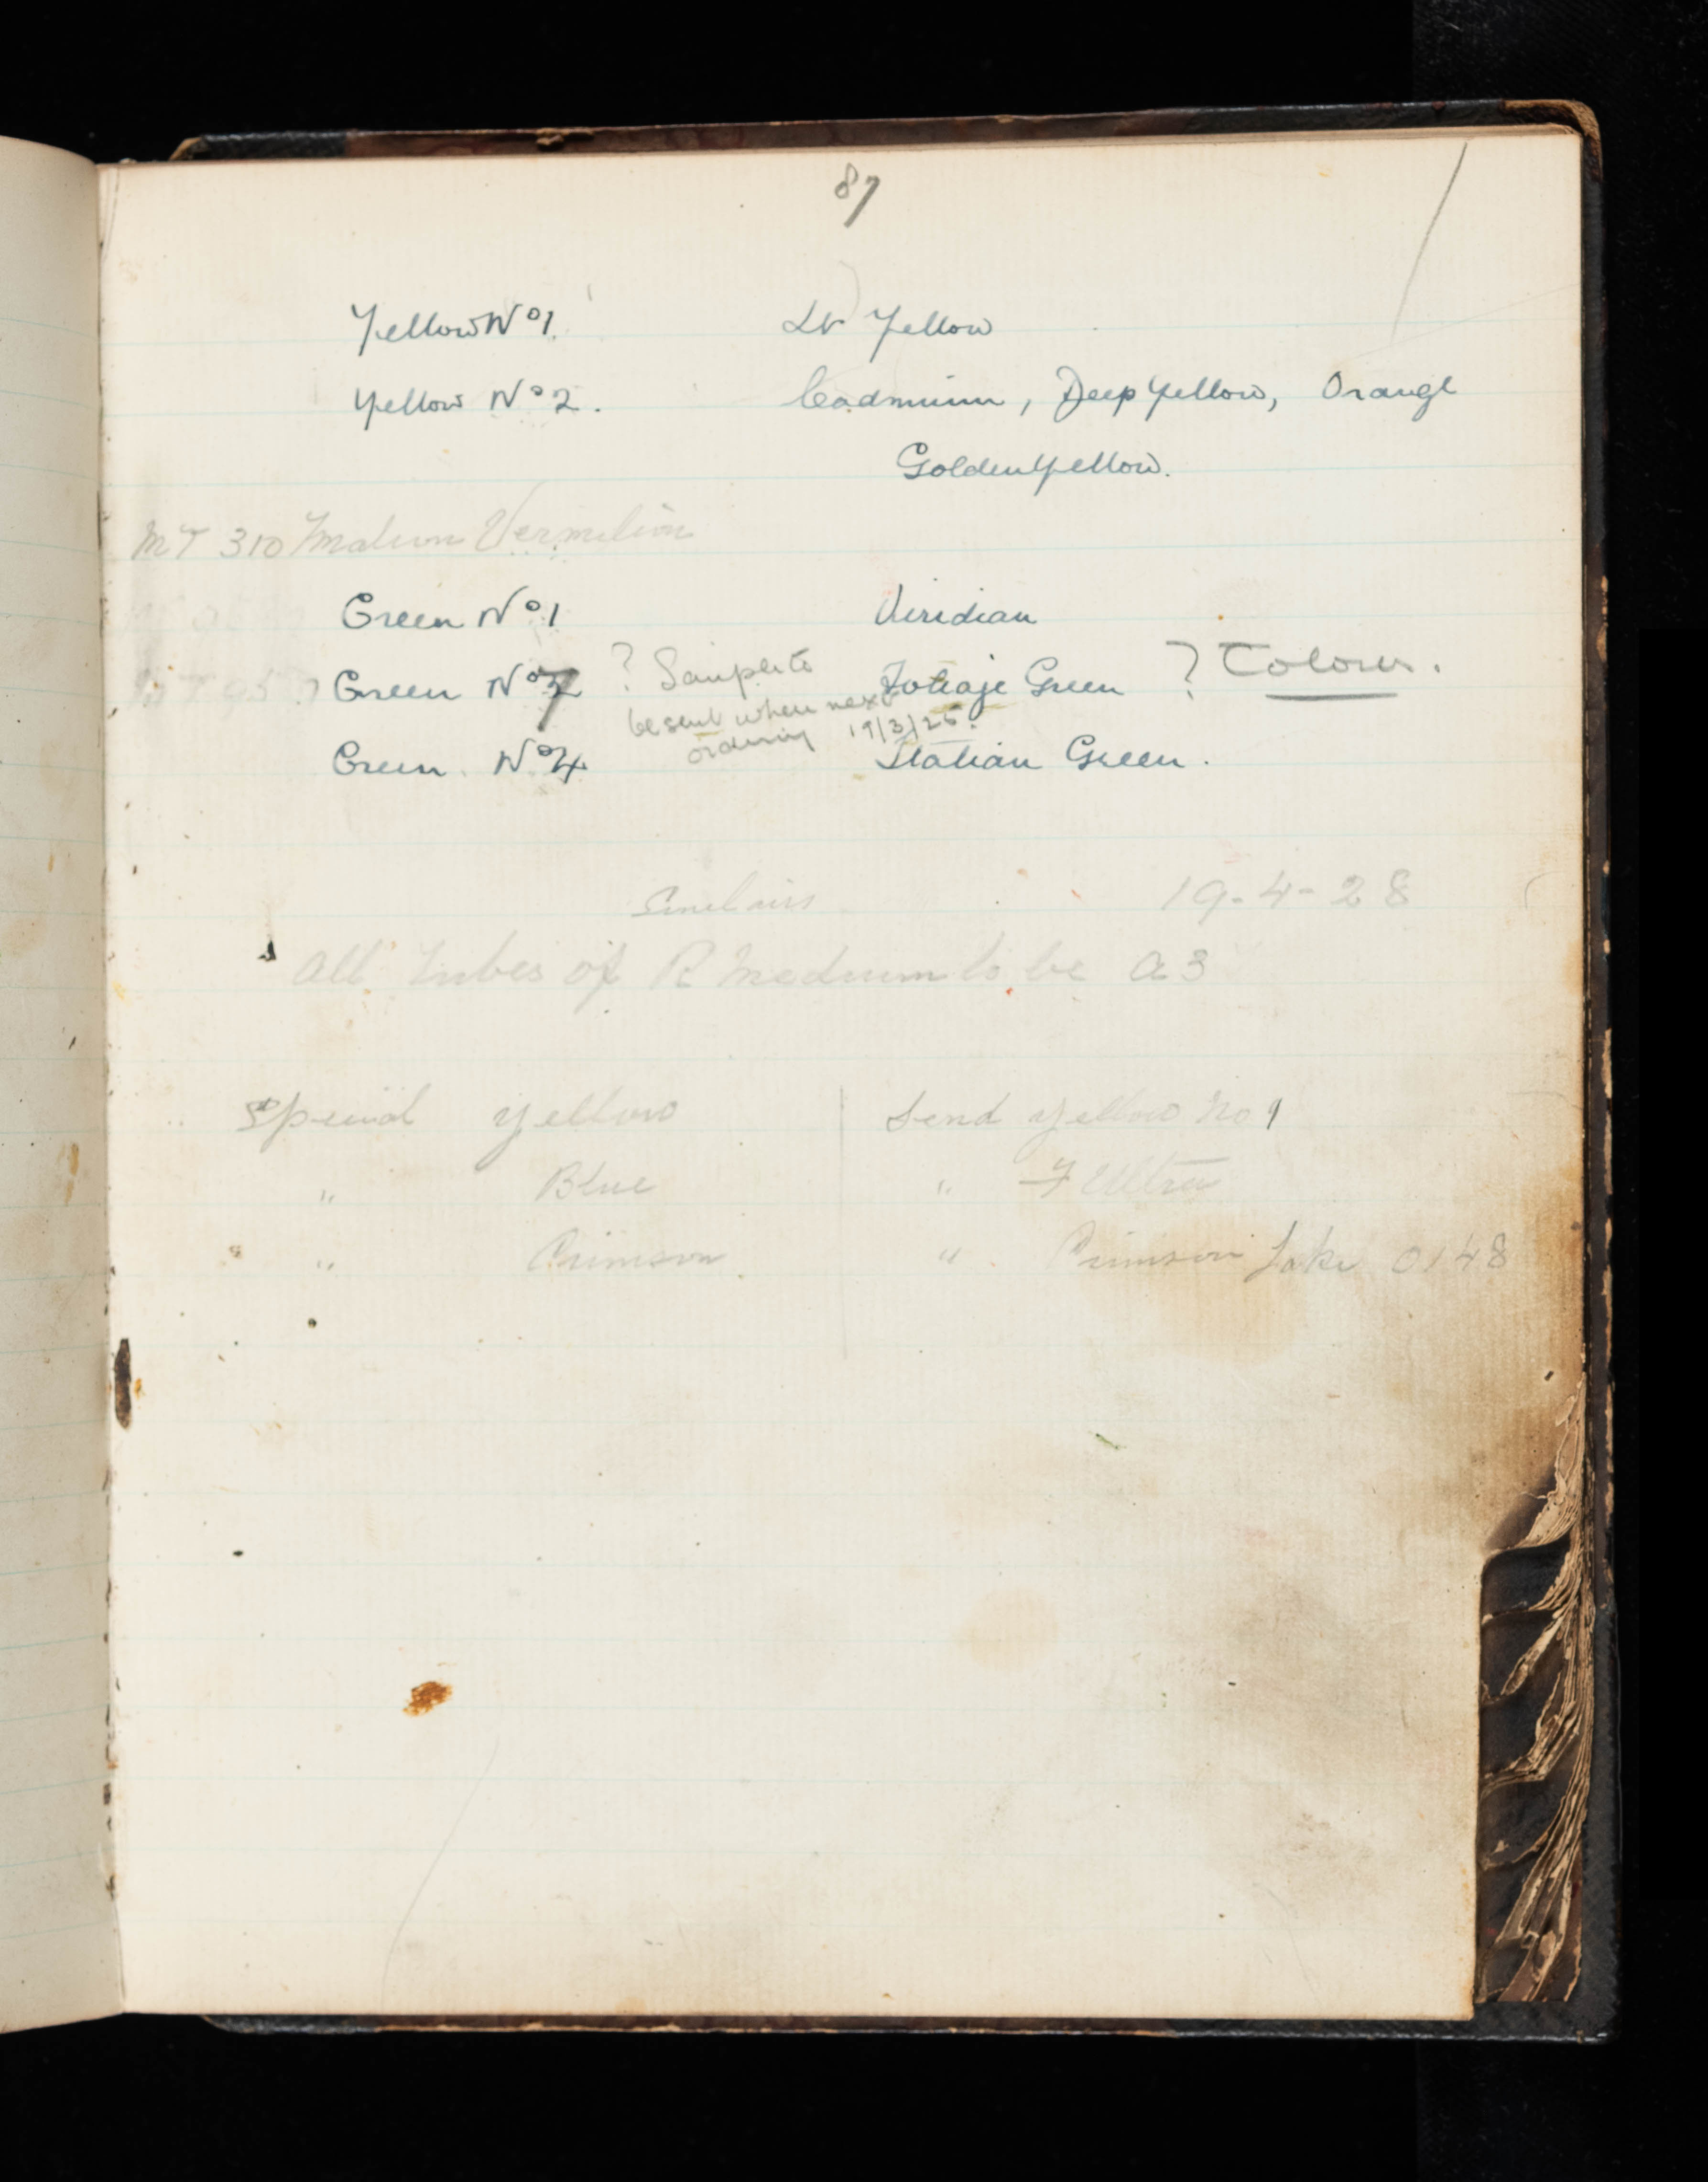 87
Yellow No 1. Lt Yellow
Yellow No 2. Cadmium, Deep Yellow, Orange
Golden Yellow.
MT 310 Vermilion
Green No 1 Viridian
Green No 7 ? Sample to Foliage Green ? Colour.
be sent when next
ordering 19/3/25.
Green No 4 Italian Green.
Sinclairs 19-4-28
All Tubes of R Medium to be A3
Special Yellow Send Yellow No 1
" Blue " F Ultra
" Crimson " Crimson Lake 0148